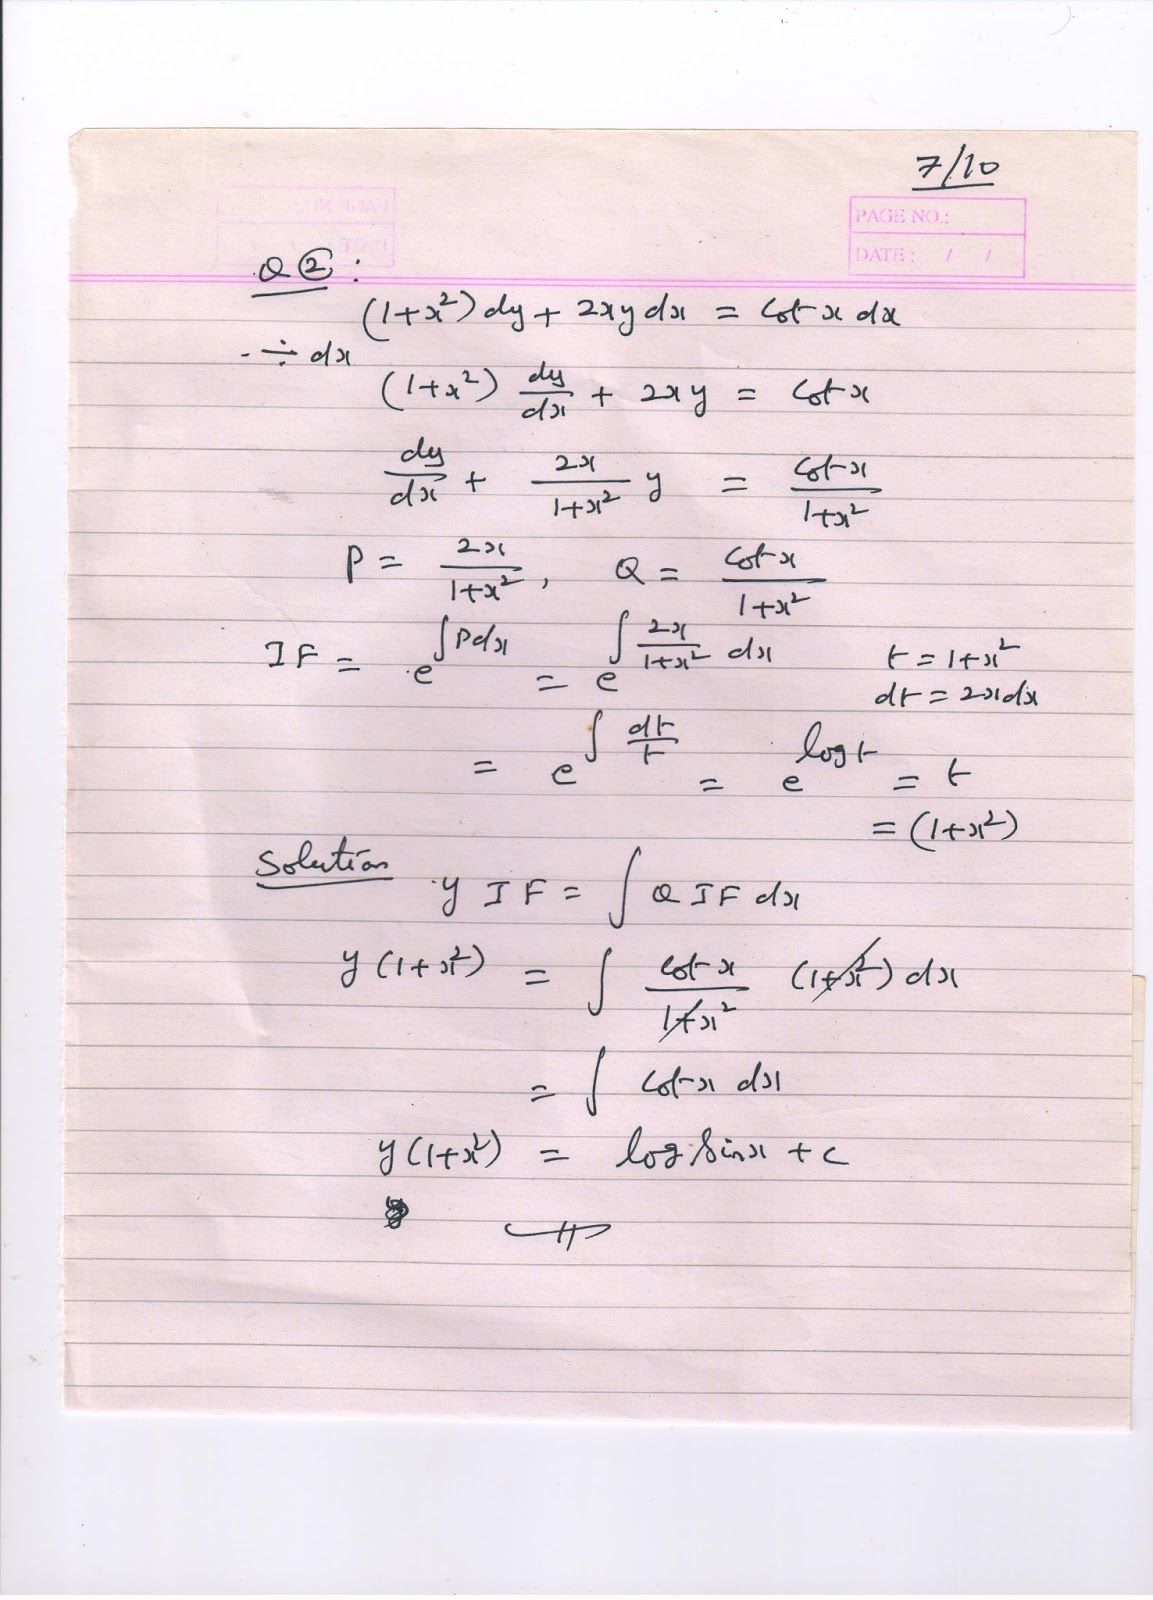 7/10
PAGE NO.:
DATE : / /
Q ② :
(1+x²) dy + 2xy dx = cot x dx
÷ dx
(1+x²) dy/dx + 2xy = cot x
dy/dx + 2x/(1+x²) y = cot x/(1+x²)
P = 2x/(1+x²), Q = cot x/(1+x²)
IF = e^∫Pdx = e^∫ 2x/(1+x²) dx
t = 1+x²
dt = 2xdx
= e^∫ dt/t = e^log t = t
= (1+x²)
Solution
y IF = ∫ Q IF dx
y (1+x²) = ∫ cot x/(1+x²) (1+x²) dx
= ∫ cot x dx
y (1+x²) = log sinx + c